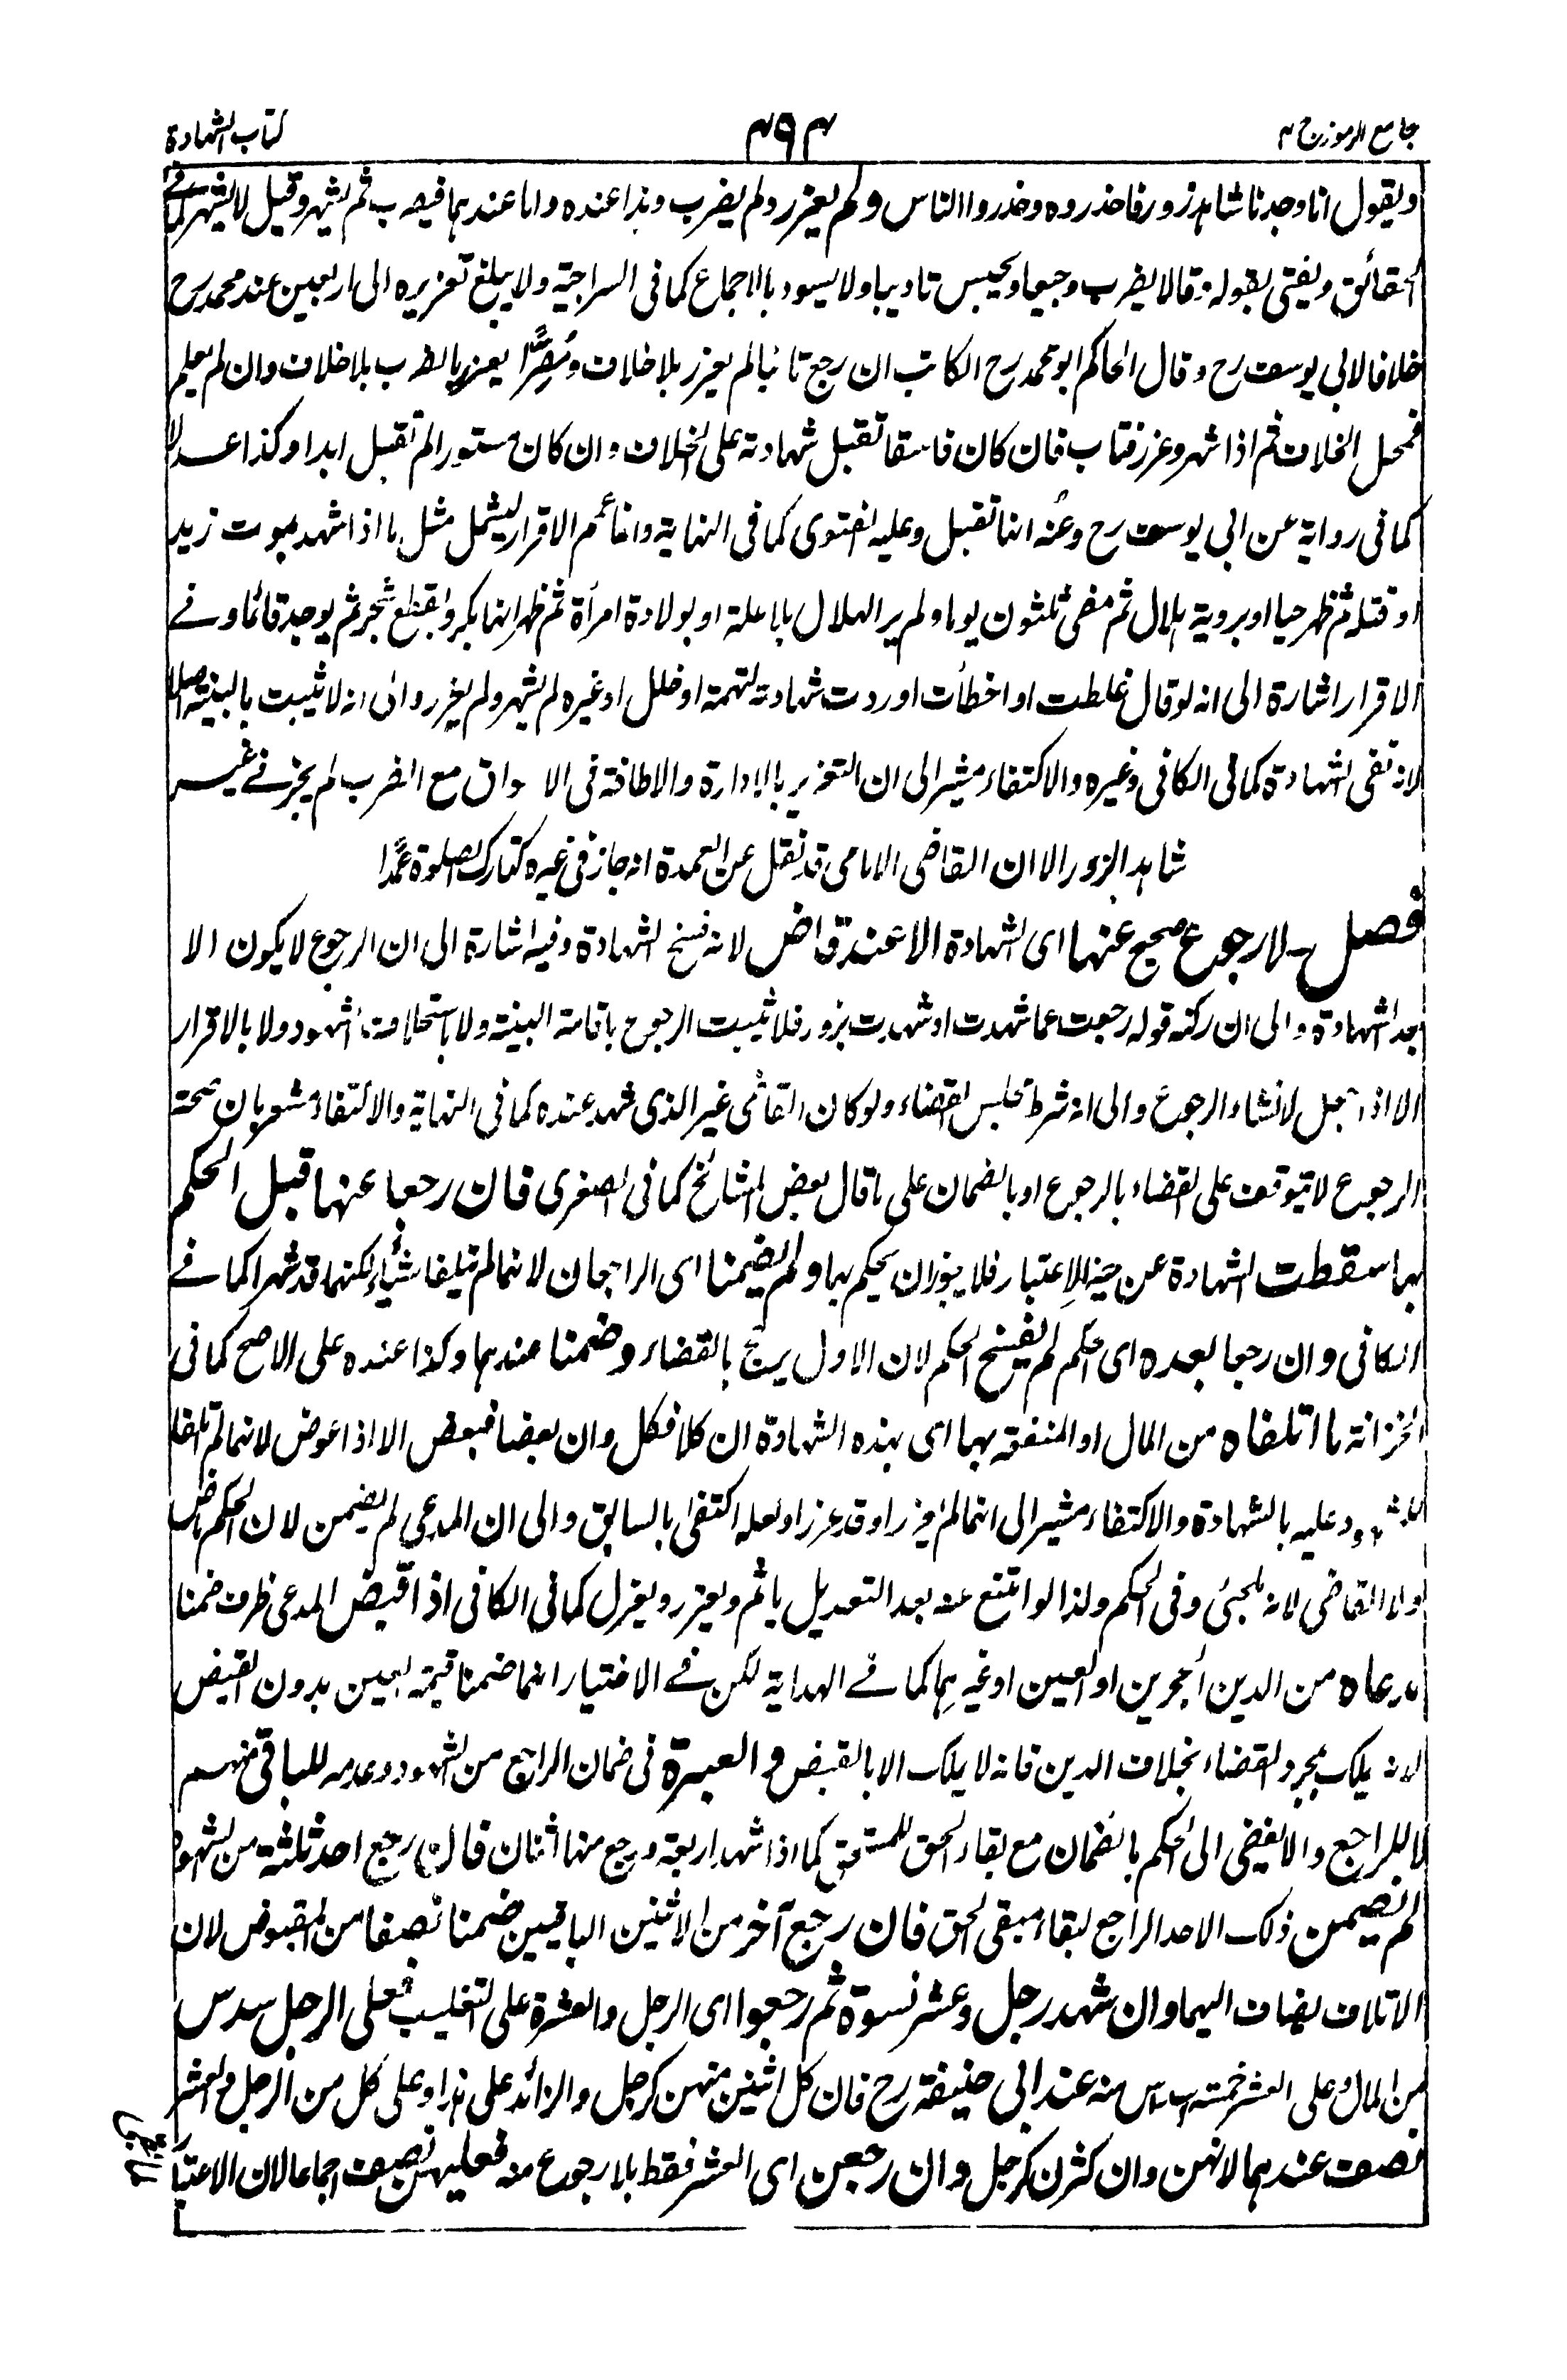 جامع الرموز ج ٣
٤٩٣
كتاب الشهادة
ويقول انا وجدنا شاهد زور فاحذروه وحذروا الناس ولم يعزر ولم يضرب وهذا عنده واما عندهما فيضرب ثم يشهر وقيل لا يشهر كما فے
الحقائق ويفتى بقوله وقالا يضرب وجيعا ويحبس تاديبا ولا يسود بالاجماع كما فى السراجية ولا يبلغ تعزيره الى اربعين عند محمد رح
خلافا لابى يوسف رح وقال الحاكم ابو محمد رح الكاتب ان رجع تائبا لم يعزر بلا خلاف ومُصِرًّا يعزر بالضرب بلا خلاف وان لم يعلم
فمحل الخلاف ثم اذا شهر وعزر فتاب فان كان فاسقا تقبل شهادته على الخلاف وان كان مستورا لم تقبل ابدا وكذا عدلا
كما فى رواية عن ابى يوسف رح وعنه انها تقبل وعليه الفتوى كما فى النهاية وانما عمم الاقرار ليشمل مثل ما اذا شهد بموت زيد
او قتله ثم ظهر حيا او بروية هلال ثم مضى ثلثون يوما ولم ير الهلال بلا علة او بولادة امرأة ثم ظهر انها بكر او بقطع شجر ثم يوجد قائما وفے
الاقرار اشارة الى انه لو قال غلطت او اخطأت او ردت شهادته لتهمة او خلل او غيره لم يشهر ولم يعزر والى انه لا يثبت بالبينة اصلا
لانه نفى الشهادة كما فى الكافى وغيره والاكتفاء مشير الى ان التعزير بالادارة والاطافة فى الاسواق مع الضرب لم يجز فے غير
شاهد الزور الا ان القاضى الامامى قد نقل عن العمدة انه جاز فى غيره كتارك الصلوة عمدًا
فصل - لا رجوع صحيح عنها اى الشهادة الا عند قاض لانه فسخ الشهادة وفيه اشارة الى ان الرجوع لا يكون الا
بعد الشهادة والى ان ركنه قوله رجعت عما شهدت او شهدت بزور فلا يثبت الرجوع باقامة البينة ولا باستحلاف الشهود ولا بالاقرار
الا اذا جعل لانشاء الرجوع والى انه شرط مجلس القضاء ولو كان القاضى غير الذى شهد عنده كما فى النهاية والاكتفاء مشعر بان صحة
الرجوع لا يتوقف على القضاء بالرجوع او بالضمان على ما قال بعض المشائخ كما فى الصغرى فان رجعا عنها قبل الحكم
بها سقطت الشهادة عن حيز الاعتبار فلا يجوز ان يحكم بها ولم يضمنا اى الراجعان لانهما لم يتلفا شيئًا ولكنهما قد شهرا كما فے
الكافى وان رجعا بعده اى الحكم لم يفسخ الحكم لان الاول يرجح بالقضاء وضمنا عندهما وكذا عنده على الاصح كما فى
الخزانة ما اتلفاه من المال او المنفعة بها اى بهذه الشهادة ان كلا فكل وان بعضا فبعض الا اذا عوض لانهما لم يتلفا
للمشهود عليه بالشهادة والاكتفاء مشير الى انهما لم يعزرا وقد عزرا ولعله اكتفى بالسابق والى ان المدعى لم يضمن لان الحكم ماض
ولا القاضى لانه ملجئ وفى الحكم ولذا لو امتنع عنه بعد التعديل ياثم ويعزر ويعزل كما فى الكافى اذا قبض المدعى ظرف ضمنا
مدعاه من الدين اجرين او العين او غيرهما كما فے الهداية لكن فے الاختيار انهما ضمنا قيمة العين بدون القبض
لانه يملك بمجرد القضاء بخلاف الدين فانه لا يملك الا بالقبض والعبرة فى ضمان الراجع من الشهود وعدمه للباقى منهم
لا للراجع والا يفضى الى الحكم بالضمان مع بقاء الحق للمستحق كما اذا شهد اربعة ورجع منها اثنان فان رجع احد ثلثة من الشهود
لم يضمن ذلك الاحد الراجع لبقاء مبقى الحق فان رجع آخر من الاثنين الباقيين ضمنا نصفا من المقبوض لان
الاتلاف يضاف اليهما وان شهد رجل وعشر نسوة ثم رجعوا اى الرجل والعشرة على التغليب فعلى الرجل سدس
من المال وعلى العشر خمسة اسداس منه عند ابى حنيفة رح فان كل اثنين منهن كرجل والزائد على هذا وعلى كل من الرجل والعشر
نصف عندهما لانهن وان كثرن كرجل وان رجعن اى العشر فقط بلا رجوع منه فعليهن نصف اجماعا لان الاعتبار